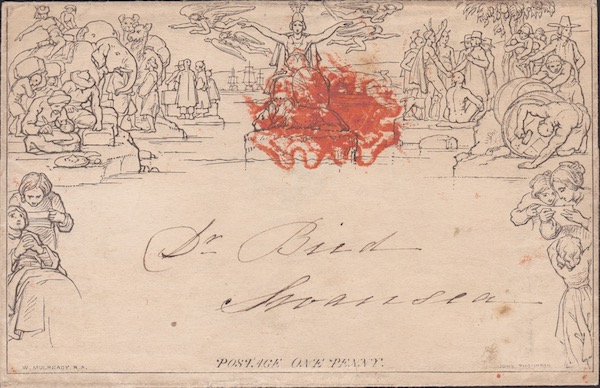 Dr Bird
Swansea
POSTAGE ONE PENNY.
W. MULREADY, R.A.
JOHN THOMPSON